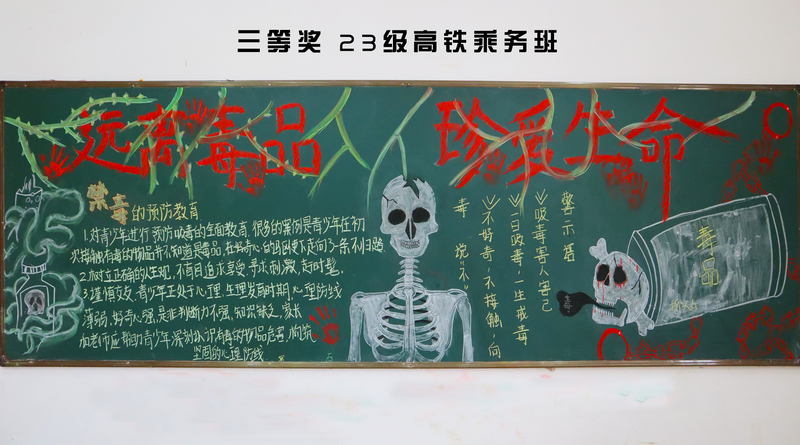 三等奖 23级高铁乘务班
远离毒品 珍爱生命
禁毒的预防教育
1.对青少年进行预防吸毒的全面教育,很多的案例是青少年在初
次接触有毒的物品并不知道是毒品,在好奇心的驱使下走向了一条不归路.
2.树立正确的人生观,不盲目追求享受,寻求刺激,赶时髦.
3.谨慎交友,青少年正处于心理,生理发育时期心理防线
薄弱,好奇心强,是非判断力不强,知识缺乏,家长
和老师应帮助青少年深刻认识有毒的物品危害,构筑
坚固的心理防线
警示语
吸毒害人害己
一日吸毒,一生戒毒
不好奇,不接触,向
毒说"不"
毒
毒品